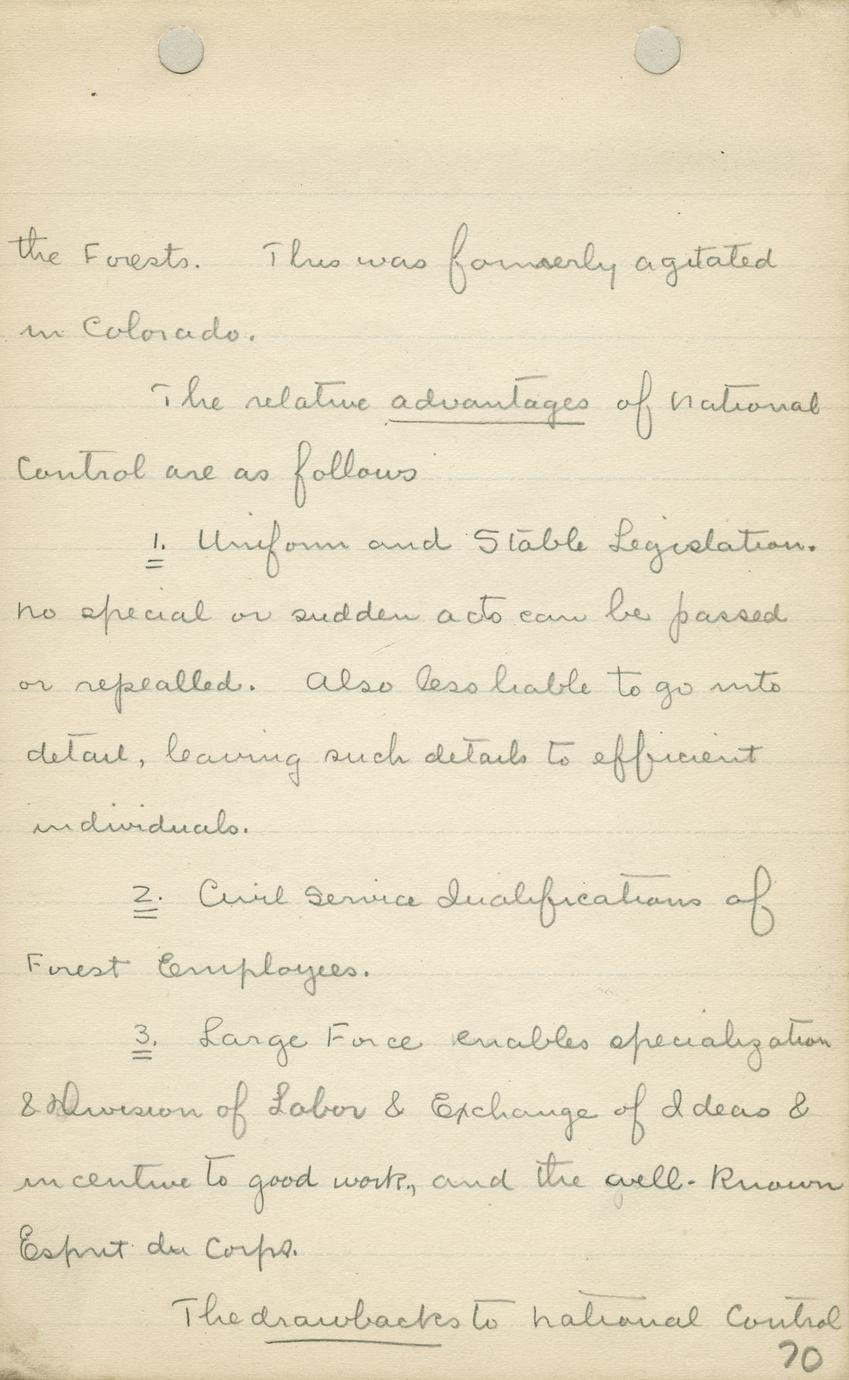 the Forests. This was formerly agitated
in Colorado.
The relative advantages of national
Control are as follows
1. Uniform and Stable Legislation.
no special or sudden acts can be passed
or repealled. Also less liable to go into
detail, leaving such details to efficient
individuals.
2. Civil Service Qualifications of
Forest Employees.
3. Large Force enables specialization
& Division of Labor & Exchange of Ideas &
incentive to good work, and the well-Known
Esprit du Corps.
The drawbacks to national Control
70